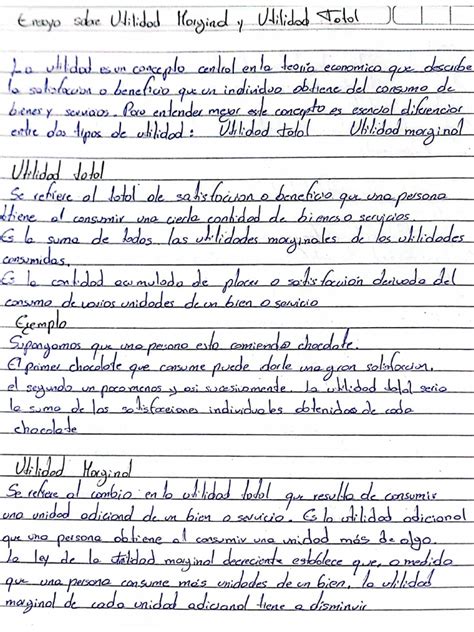 Ensayo sobre Utilidad Marginal y Utilidad Total
La utilidad es un concepto central en la teoria economica que describe
la satisfaccion o beneficio que un individuo obtiene del consumo de
bienes y servicios. Para entender mejor este concepto es esencial diferenciar
entre dos tipos de utilidad: Utilidad total Utilidad marginal
Utilidad total
Se refiere al total de satisfaccion o beneficio que una persona
obtiene al consumir una cierta cantidad de bienes o servicios
Es la suma de todas las utilidades marginales de las utilidades
consumidas.
Es la cantidad acumulada de placer o satisfaccion derivada del
consumo de varios unidades de un bien o servicio
Ejemplo
Supongamos que una persona esta comiendo chocolate.
El primer chocolate que consume puede darle una gran satisfaccion,
el segundo un poco menos y asi sucesivamente. La utilidad total seria
la suma de las satisfacciones individuales obtenidas de cada
chocolate
Utilidad Marginal
Se refiere al cambio en la utilidad total que resulta de consumir
una unidad adicional de un bien o servicio. Es la utilidad adicional
que una persona obtiene al consumir una unidad más de algo.
La ley de la utilidad marginal decreciente establece que, a medida
que una persona consume más unidades de un bien, la utilidad
marginal de cada unidad adicional tiene a disminuir